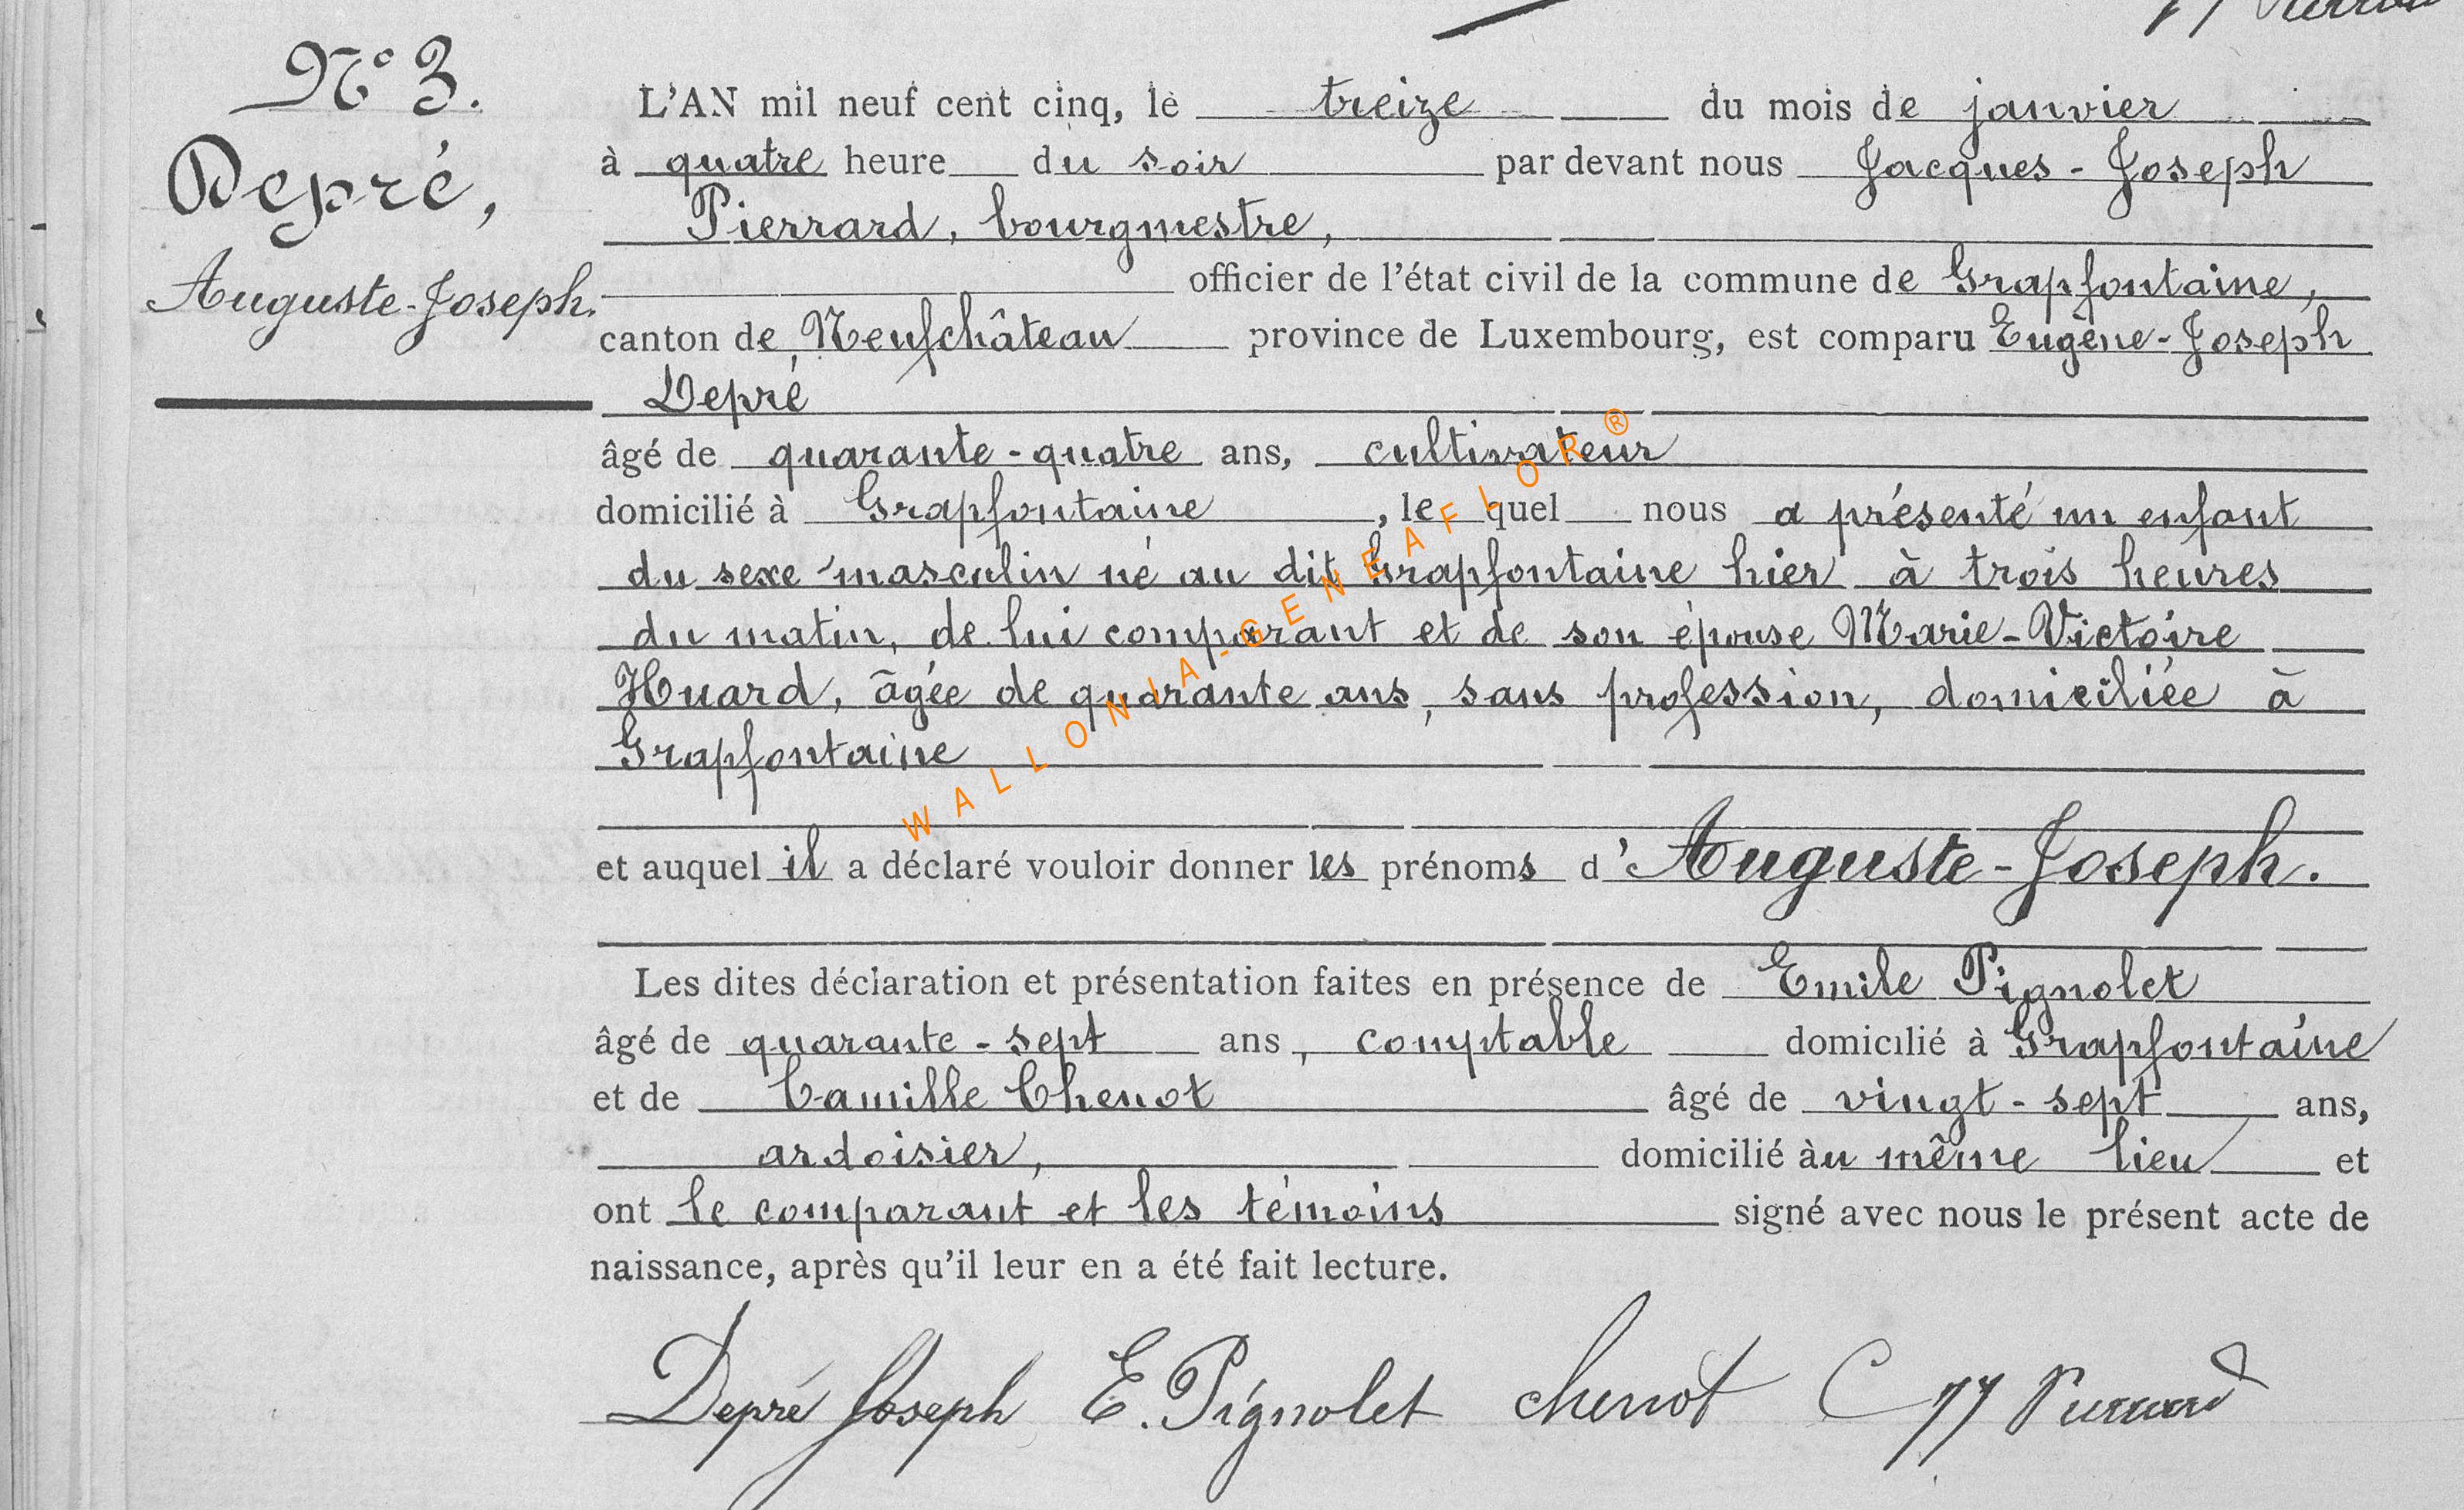 N° 3.
Depré,
Auguste-Joseph.
L'AN mil neuf cent cinq, le treize du mois de janvier
à quatre heure du soir par devant nous Jacques-Joseph
Pierrard, bourgmestre,
officier de l'état civil de la commune de Grapfontaine,
canton de Neufchâteau province de Luxembourg, est comparu Eugène-Joseph
Depré
âgé de quarante-quatre ans, cultivateur
domicilié à Grapfontaine, le quel nous a présenté un enfant
du sexe masculin né au dit Grapfontaine hier à trois heures
du matin, de lui comparant et de son épouse Marie-Victoire
Huard, âgée de quarante ans, sans profession, domiciliée à
Grapfontaine
et auquel il a déclaré vouloir donner les prénoms d'Auguste-Joseph.
Les dites déclaration et présentation faites en présence de Emile Pignolet
âgé de quarante-sept ans, comptable domicilié à Grapfontaine
et de Camille Chenot âgé de vingt-sept ans,
ardoisier, domicilié àu même lieu et
ont le comparant et les témoins signé avec nous le présent acte de
naissance, après qu'il leur en a été fait lecture.
Depré Joseph E. Pignolet Chenot C JJ Pierrard
WALLONIA-GENEAFLOR®